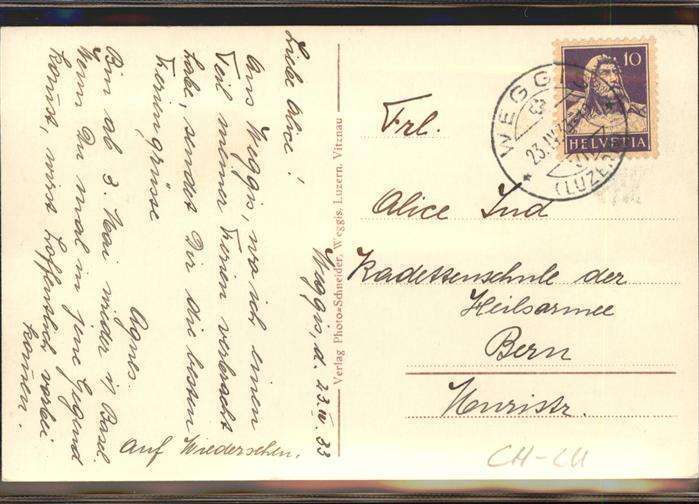 Weggis, d. 23.IV.33
Liebe Alice!
Aus Weggis, wo ich einen
Teil meiner Ferien verbracht
habe, sendet Dir die besten
Feriengrüsse
Agnes.
Bin ab 3. Mai wieder in Basel.
Wenn Du mal in jene Gegend
kommst, wirst hoffentlich vorbei
kommen.
Auf Wiedersehen.
Verlag Photo=Schneider, Weggis, Luzern, Vitznau
10
HELVETIA
WEGGIS
23.IV.
(LUZERN)
Frl.
Alice Ind
Kadettenschule der
Heilsarmee
Bern
CH-LU